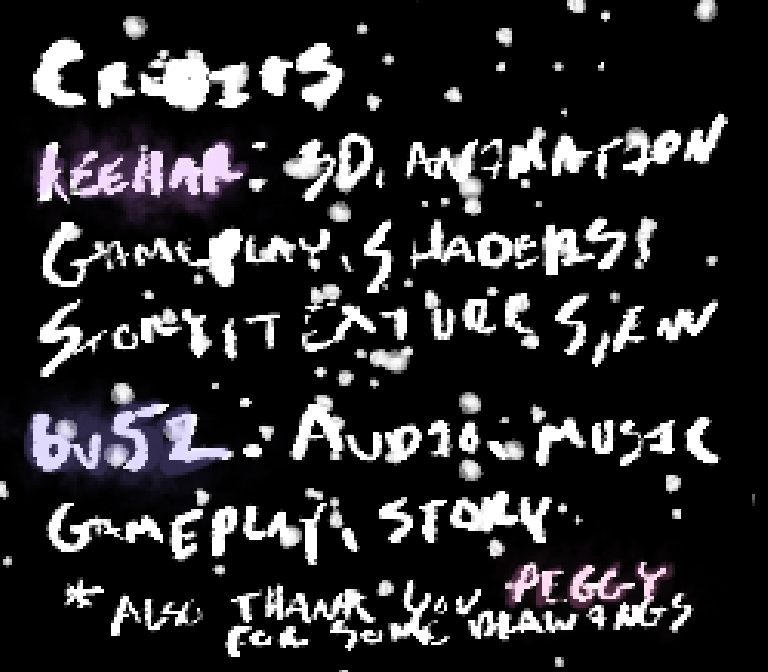 CREDITS
KEEHAR: 3D, ANIMATION
GAMEPLAY, SHADERS!
STORY, TEXTURES,
BUSZ: AUDIO, MUSIC
GAMEPLAY, STORY
* ALSO THANK YOU PEGGY
FOR SOME DRAWINGS